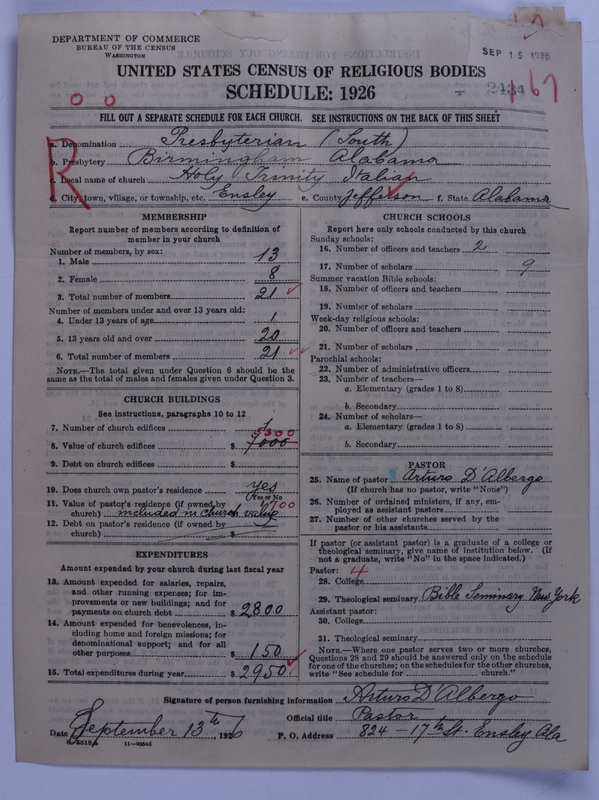 DEPARTMENT OF COMMERCE
BUREAU OF THE CENSUS
WASHINGTON
SEP 15 1926
UNITED STATES CENSUS OF RELIGIOUS BODIES
SCHEDULE: 1926
167
FILL OUT A SEPARATE SCHEDULE FOR EACH CHURCH. SEE INSTRUCTIONS ON THE BACK OF THIS SHEET
R
a. Denomination Presbyterian (South)
b. Presbytery Birmingham Alabama
c. Local name of church Holy Trinity Italian
d. City, town, village, or township, etc. Ensley e. County Jefferson f. State Alabama
MEMBERSHIP
Report number of members according to definition of
member in your church
Number of members, by sex:
1. Male 13
2. Female 8
3. Total number of members 21
Number of members under and over 13 years old:
4. Under 13 years of age 1
5. 13 years old and over 20
6. Total number of members 21
NOTE.—The total given under Question 6 should be the
same as the total of males and females given under Question 3.
CHURCH BUILDINGS
See instructions, paragraphs 10 to 12
7. Number of church edifices 1
5300
8. Value of church edifices $ 7000
9. Debt on church edifices $
10. Does church own pastor's residence yes
(Yes or No)
11. Value of pastor's residence (if owned by 1700
church) included in church value
12. Debt on pastor's residence (if owned by
church) $
EXPENDITURES
Amount expended by your church during last fiscal year
13. Amount expended for salaries, repairs,
and other running expenses; for im-
provements or new buildings; and for
payments on church debt $ 2800
14. Amount expended for benevolences, in-
cluding home and foreign missions; for
denominational support; and for all
other purposes $ 150
15. Total expenditures during year $ 2950
CHURCH SCHOOLS
Report here only schools conducted by this church
Sunday schools:
16. Number of officers and teachers 2
17. Number of scholars 9
Summer vacation Bible schools:
18. Number of officers and teachers
19. Number of scholars
Week-day religious schools:
20. Number of officers and teachers
21. Number of scholars
Parochial schools:
22. Number of administrative officers
23. Number of teachers—
a. Elementary (grades 1 to 8)
b. Secondary
24. Number of scholars—
a. Elementary (grades 1 to 8)
b. Secondary
PASTOR
25. Name of pastor Arturo D'Albergo
(If church has no pastor, write "None")
26. Number of ordained ministers, if any, em-
ployed as assistant pastors
27. Number of other churches served by the
pastor or his assistants
If pastor (or assistant pastor) is a graduate of a college or
theological seminary, give name of institution below. (If
not a graduate, write "No" in the space indicated.)
Pastor: 4
28. College
29. Theological seminary Bible Seminary New York
Assistant pastor:
30. College
31. Theological seminary
NOTE.—Where one pastor serves two or more churches,
Questions 28 and 29 should be answered only on the schedule
for one of the churches; on the schedules for the other churches,
write "See schedule for church."
Signature of person furnishing information Arturo D'Albergo
Official title Pastor
Date September 13th, 1926 P. O. Address 824 - 17th St. Ensley Ala